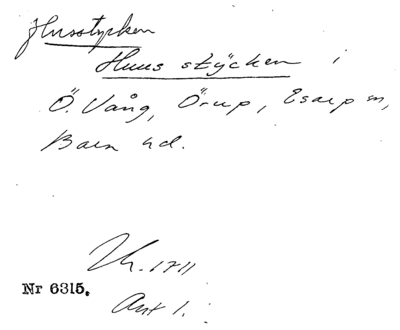 Husstycken
Huus stÿcken i
Ö. Vång, Örup, Esarp sn,
Bara hd.
Lh. 1711
Nr 6315.
Ant 1.